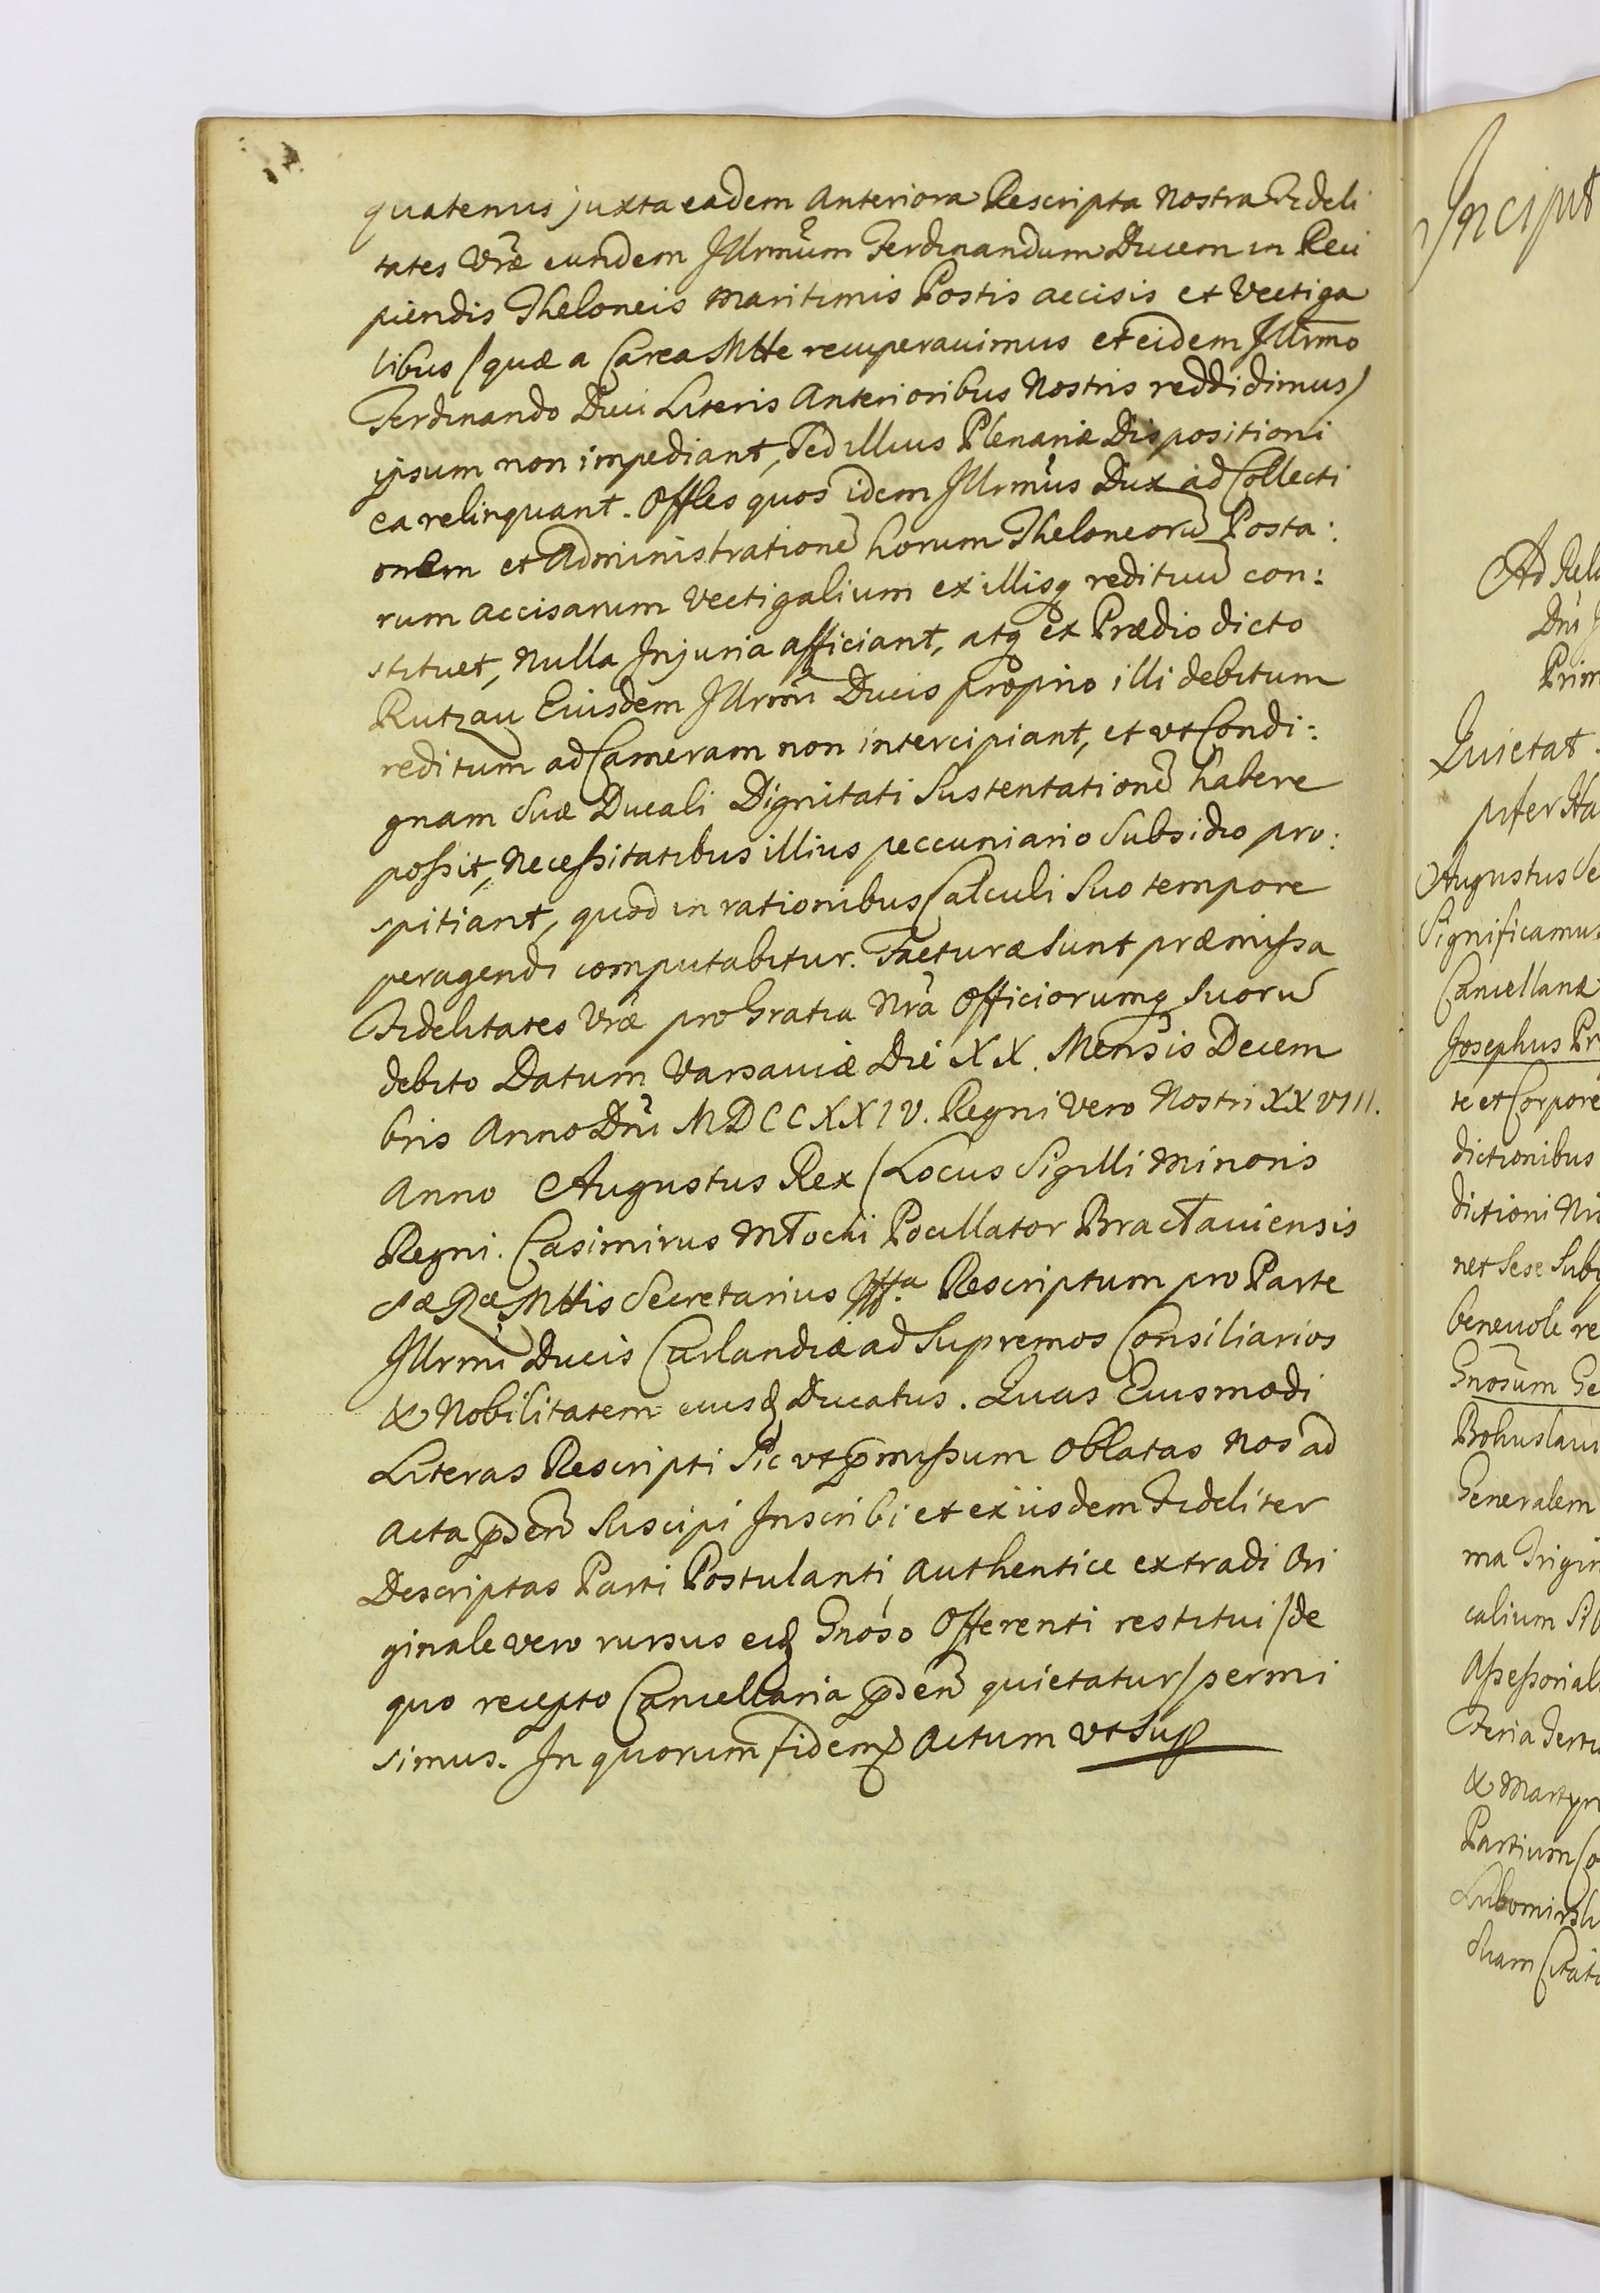 quatenus juxta eadem Anteriora Rescripta Nostra Fideli
tates Vrae eundem Illrmum Ferdinandum Ducem in Reci
piendis Theloneis Maritimis Postis accisis et Vectiga
libus /quæ a Carea Mtte recuperavimus et eidem Illrmo
Ferdinando Duci Literis Anterioribus Nostris reddidimus/
ipsum non impediant, Sed illius Plenariæ Dispositioni
ea relinquant. Offles quos idem Illrmus Dux ad Collecti
onem et Administrationē horum Theloneorū Posta:
rum accisarum Vectigalium ex illisq redituū con:
stituet, Nulla Injuria afficiant, atq ex Prædio dicto
Rutzau Eiusdem Illrmi Ducis proprio illi debitum
reditum ad Cameram non intercipiant, et vt Condi:
gnam Suæ Ducali Dignitati Sustentationē habere
possit, Necessitatibus illius peccuniario Subsidio pro:
spitiant, quod in rationibus Calculi Suo tempore
peragendi computabitur. Facturæ Sunt præmissa
Fidelitates Vræ pro Gratia Nra Officiorumq Suorū
debito Datum Varsaviæ Die XX. Mensis Decem
bris Anno Dni MDCCXXIV. Regni Vero Nostri XXVIII.
Anno Augustus Rex /Locus Sigilli Minoris
Regni. Casimirus Młocki Pocillator Bractaviensis
SæRæ Mttis Secretarius Rescriptum pro Parte
Illrmi Ducis Curlandiæ ad Supremos Consiliarios
& Nobilitatem eiusd Ducatus. Quas Eiusmodi
Literas Rescripti Sic vt pmissum Oblatas Nos ad
Acta pden Suscipi Inscribi et ex iisdem Fideliter
Descriptas Parti Postulanti Authentice extradi Ori
ginale vero rursus eid Gnoso Offerenti restitui /de
quo recepto Cancellaria pden quietatur/ permi
simus. In quorum fidem Actum vt Sup
Inciput
Ad Rela
Dni J
Prim
Quietat.
Augustus Se
Significamus
Cancellariæ
Josephus Pr
te et Corpore
dictionibus
dictioni Nr
net Sese Subj
benevole re
Gnosum Ge
Bohuslav
Generalem
ma Trigin
calium Sib
Assessorial
Feria Terti
& Martyr
Partium Co
Lubomirsk
Citati